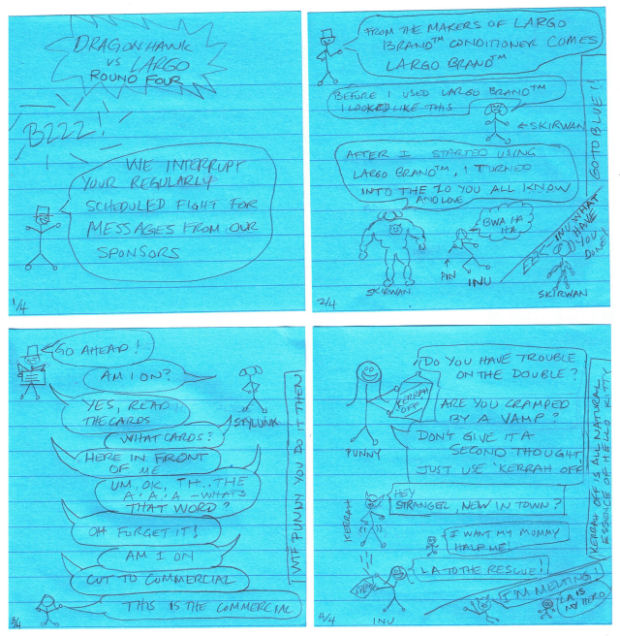 DRAGONHAWK
VS LARGO
ROUND FOUR
BZZZ!
WE INTERRUPT
YOUR REGULARLY
SCHEDULED FIGHT FOR
MESSAGES FROM OUR
SPONSORS
1/4
FROM THE MAKERS OF LARGO
BRAND™ CONDITIONER COMES
LARGO BRAND™
BEFORE I USED LARGO BRAND™
I LOOKED LIKE THIS
←SKIRWAN
AFTER I STARTED USING
LARGO BRAND™, I TURNED
INTO THE 10 YOU ALL KNOW
AND LOVE
BWA HA
HA
SKIRWAN
PIN
INU
INU WHAT
HAVE
YOU
DONE?
SKIRWAN
GOTO BLUE 1!
2/4
GO AHEAD!
AM I ON?
YES, READ
THE CARDS
SKYLUNK
WHAT CARDS?
HERE IN FRONT
OF ME
UM..OK, TH..THE
A.. A.. A -WHATS
THAT WORD?
OH FORGET IT!
AM I ON
CUT TO COMMERCIAL
THIS IS THE COMMERCIAL
WTF PUNNY YOU DO IT THEN
3/4
DO YOU HAVE TROUBLE
ON THE DOUBLE?
KERRAH
OFF
ARE YOU CRAMPED
BY A VAMP?
PUNNY
DON'T GIVE IT A
SECOND THOUGHT
JUST USE 'KERRAH OFF'
HEY
STRANGER, NEW IN TOWN?
KERRAH
I WANT MY MOMMY
HALF ME!
LA TO THE RESCUE!
INU
I'M MELTING!
LA IS
MY HERO
KERRAH OFF IS ALL NATURAL
ESSENCE OF HELLO KITTY
4/4